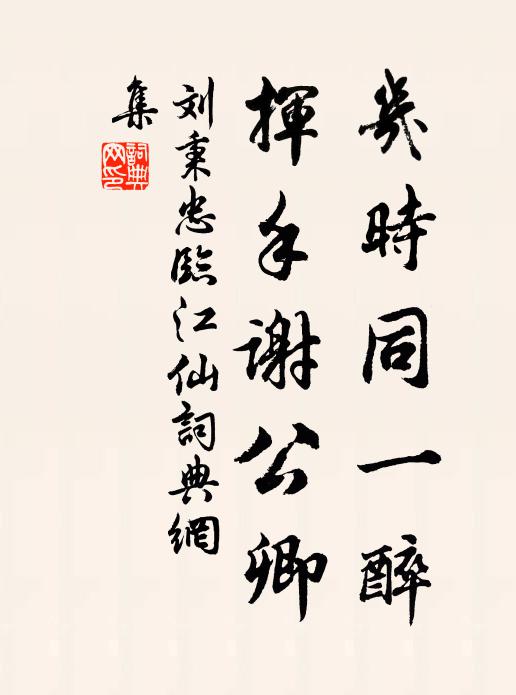 幾時同一醉
揮手謝公卿
刘秉忠臨江仙詞典網
集
詞典网印